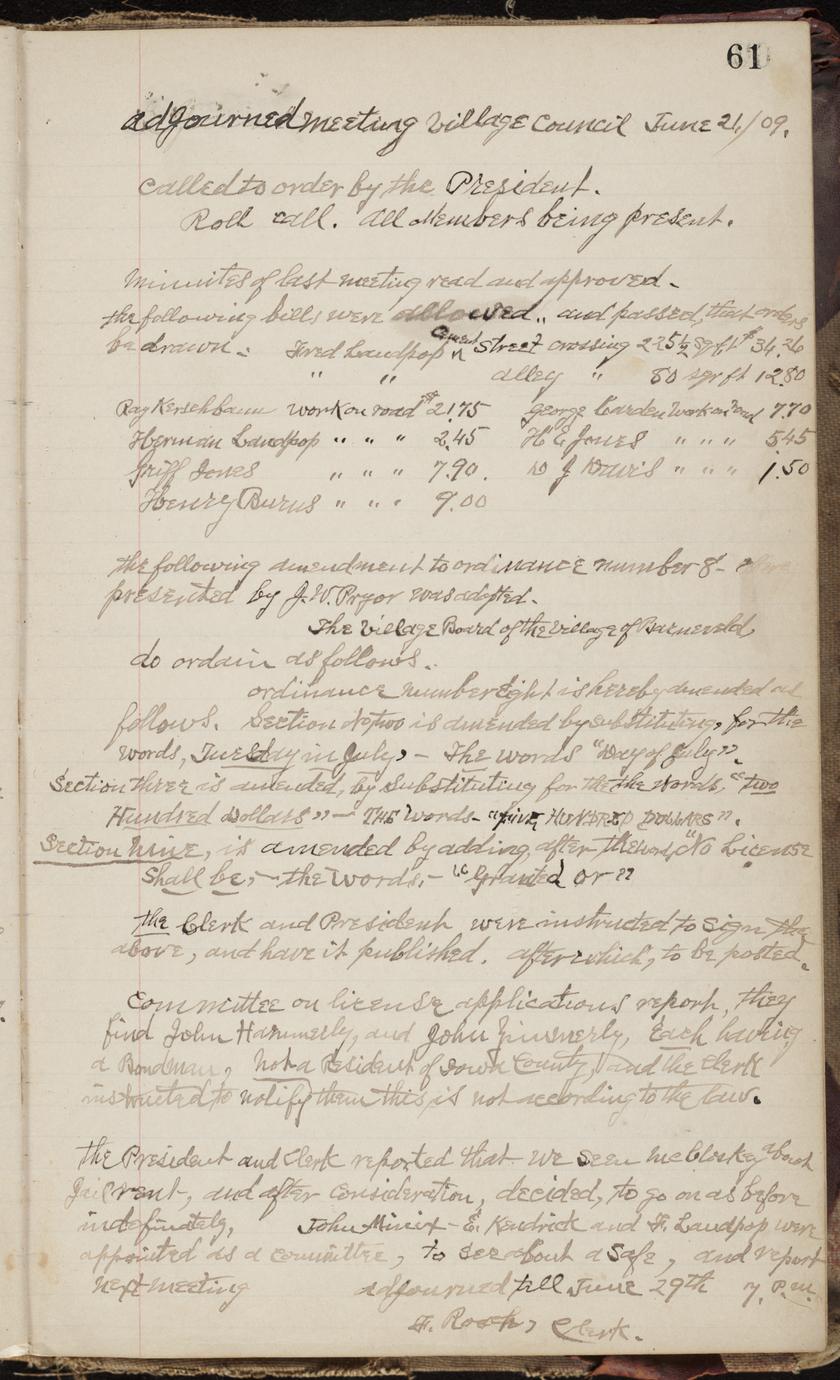 61
adjourned meeting Village Council June 21/09.
Called to order by the President.
Roll call. all Members being present.
Minnites of last meeting read and approved.
the following bills were allowed, and passed, that orders
be drawn: Fred Landpop Cement Street crossing 225½ sqr ft $34.26
" " alley " 80 sqr ft 12.80
Ray Kerschbaum work on road $21.75 George Carden Work on road 7.70
Herman Landpop " " " 2.45 H E Jones " " " 5.45
Griff Jones " " " 7.90. D J Davis " " " 1.50
Henry Burns " " " 9.00
the following amendment to ordinance number 8-
presented by J.W. Pryor was adopted.
The Village Board of the Village of Barneveld
do ordain as follows.
ordinance number Eight is hereby amended as
follows. Section No, two is amended by substituting, for the
words, Tuesday in July, - The words "Day of July".
Section three is amended, by Substituting for the the words, "two
Hundred Dollars" - THE Words - "five HUNDRED DOLLARS".
Section Nine, is amended by adding, after the word, "No License
Shall be, - the Words, - "Granted or"
the Clerk and President were instructed to Sign the
above, and have it published. after which, to be posted.
Committee on license applications report, they
find John Hammerly, and John Zimmerly, Each having
a Bondman, Not a Resident of Iowa County, and the Clerk
instructed to notify them this is not according to the law.
the President and Clerk reported that we Seen McCloskey about
Jail rent, and after Consideration, decided, to go on as before
indefinately, John Minix - E. Kendrick and F. Landpop were
appointed as a Committee, to See about a Safe, and report
Next meeting adjourned till June 29th 7. P.M.
F. Rock, Clerk.